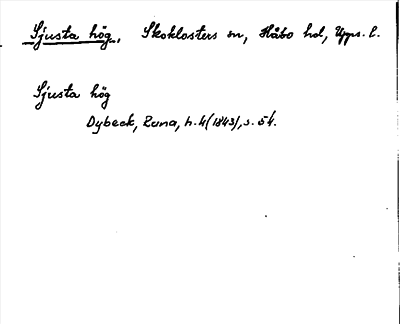 Sjusta hög, Skoklosters sn, Håbo hd, Upps. l.
Sjusta hög
Dybeck, Runa, h. 4 (1843), s. 54.